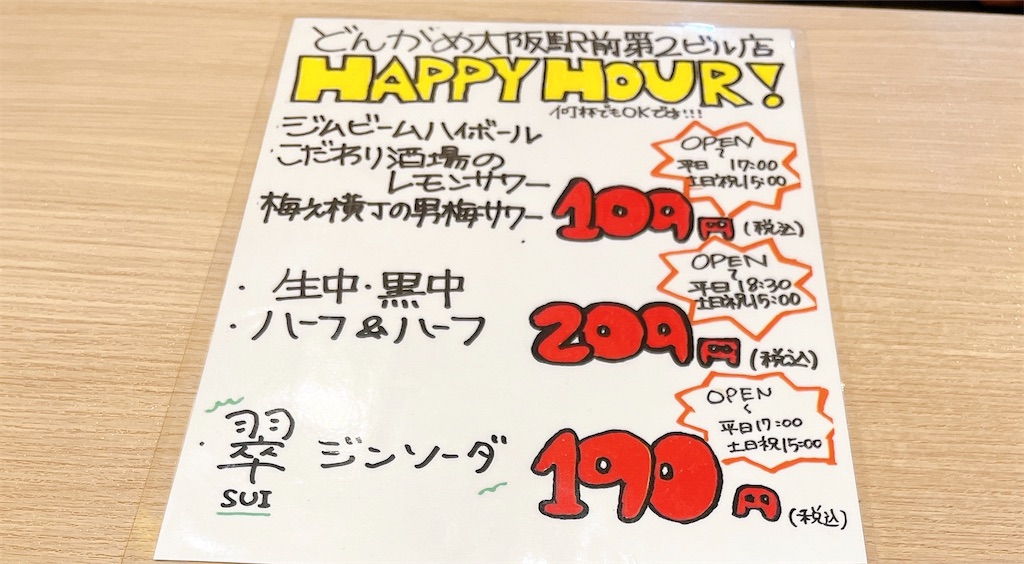 どんがめ大阪駅前第2ビル店
HAPPY HOUR!
何杯でもOKですよ!!!
・ジムビームハイボール
・こだわり酒場の
レモンサワー
・梅乞横丁の男梅サワー
109円(税込)
OPEN
〜
平日 17:00
土日祝15:00
・生中・黒中
・ハーフ&ハーフ
209円(税込)
OPEN
〜
平日18:30
土日祝15:00
・翠 ジンソーダ
SUI
190円(税込)
OPEN
〜
平日17:00
土日祝15:00